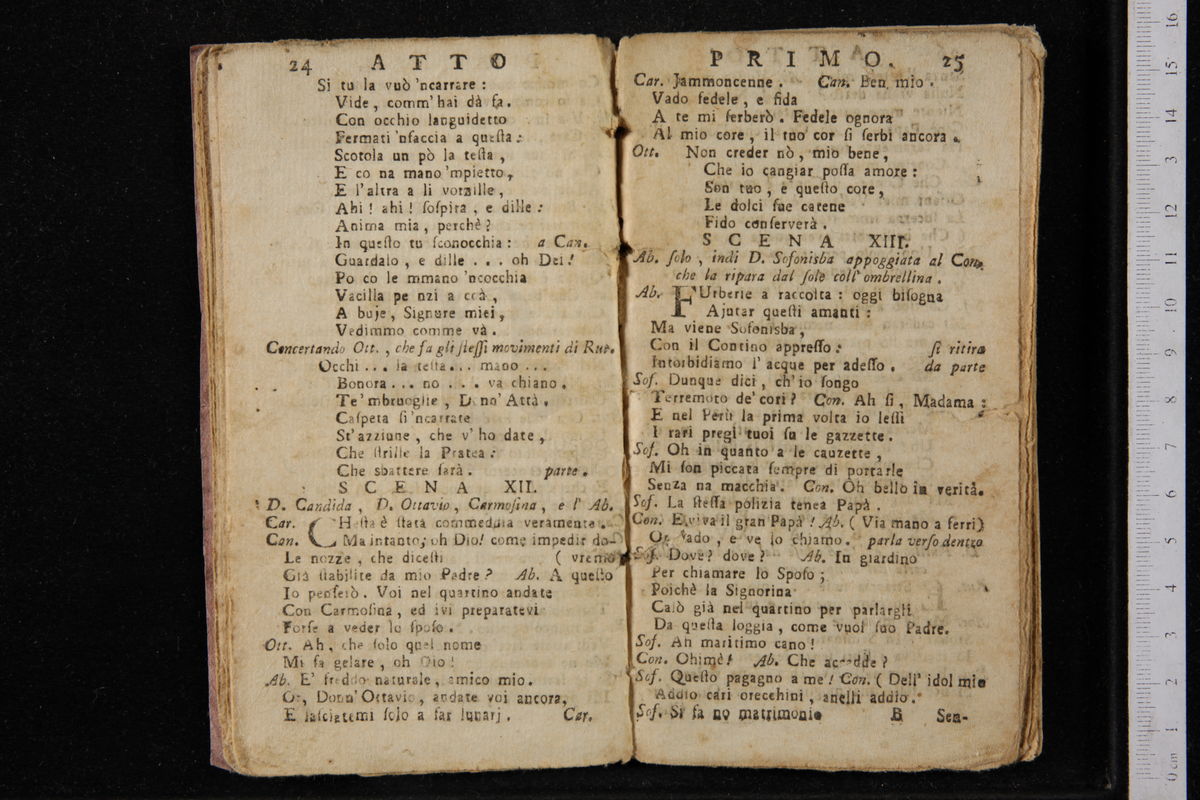 24 ATTO
Si tu la vuò 'ncarrare :
Vide , comm' hai dà fa .
Con occhio languidetto
Fermati 'nfaccia a queſta :
Scotola un pò la teſta ,
E co na mano 'mpietto ,
E l' altra a li vorzille ,
Ahi ! ahi ! ſoſpira , e dille :
Anima mia , perchè ?
In queſto tu ſconocchia : a Can.
Guardalo , e dille . . . oh Dei !
Po co le mmano 'ncocchia
Vacilla pe nzi a ccà ,
A buje , Signure miei ,
Vedimmo comme và .
Concertando Ott. , che fa gli ſteſſi movimenti di Rut.
Occhi . . . la teſta . . . mano . . .
Bonora . . . no . . . va chiano .
Te' mbruoglie , Donn' Attà .
Caſpeta ſi 'ncarrate
St' azziune , che v' ho date ,
Che ſtrille la Pratea :
Che sbattere farà . parte .
SCENA XII.
D. Candida , D. Ottavio , Carmoſina , e l' Ab.
Car. CHeſta è ſtata commeduia veramente .
Can. Ma intanto , oh Dio ! come impedir do-
Le nozze , che diceſti ( vremo
Già ſtabilite da mio Padre ? Ab. A queſto
Io penſerò . Voi nel quartino andate
Con Carmoſina , ed ivi preparatevi
Forſe a veder lo ſpoſo .
Ott. Ah , che ſolo quel nome
Mi fa gelare , oh Dio !
Ab. E' freddo naturale , amico mio .
Or , Donn' Ottavio , andate voi ancora ,
E laſciatemi ſolo a far lunarj . Car.
PRIMO. 25
Car. Jammoncenne . Can. Ben mio .
Vado fedele , e fida
A te mi ſerberò . Fedele ognora
Al mio core , il tuo cor ſi ſerbi ancora .
Ott. Non creder nò , mio bene ,
Che io cangiar poſſa amore :
Son tuo , e queſto core ,
Le dolci ſue catene
Fido conſerverà .
SCENA XIII.
Ab. ſolo , indi D. Soſonisba appoggiata al Con.
che la ripara dal ſole coll' ombrellina .
Ab. FUrberie a raccolta : oggi biſogna
Ajutar queſti amanti :
Ma viene Sofonisba ,
Con il Contino appreſſo : ſi ritira
Intorbidiamo l' acque per adeſſo . da parte
Sof. Dunque dici , ch' io ſongo
Terremoto de' cori ? Con. Ah ſi , Madama :
E nel Perù la prima volta io leſſi
I rari pregi tuoi ſu le gazzette .
Sof. Oh in quanto a le cauzette ,
Mi ſon piccata ſempre di portarle
Senza na macchia . Con. Oh bello in verità .
Sof. La ſteſſa polizia tenea Papà .
Con. Evviva il gran Papà ! Ab. ( Via mano a ferri )
Or vado , e ve lo chiamo . parla verſo dentro
Sof. Dove ? dove ? Ab. In giardino
Per chiamare lo Spoſo ;
Poichè la Signorina
Calò già nel quartino per parlargli
Da queſta loggia , come vuol ſuo Padre .
Sof. Ah maritimo cano !
Con. Ohimè ! Ab. Che accadde ?
Sof. Queſto pagagno a me ! Con. ( Dell' idol mio
Addio cari orecchini , anelli addio .
Sof. Si fa no matrimonio B Sen-